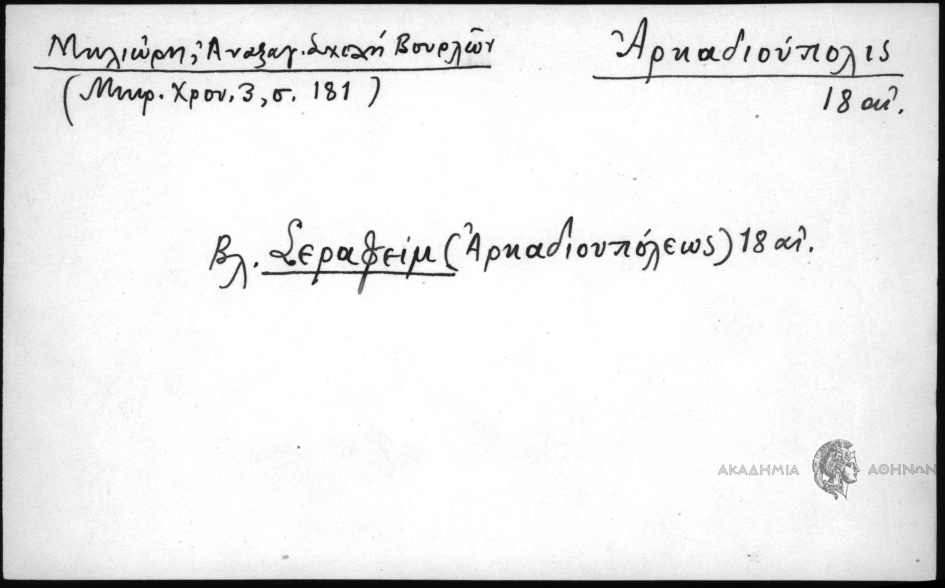 Μηλιώρη, Ἀναξαγ. Σχολή Βουρλῶν
(Μικρ. Χρον. 3, σ. 181)
Ἀρκαδιούπολις
18 αἰ.
βλ. Σεραφείμ (Ἀρκαδιουπόλεως) 18 αἰ.
ΑΚΑΔΗΜΙΑ ΑΘΗΝΩΝ